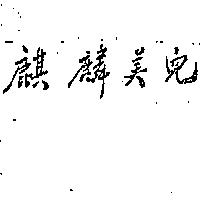 麒麟美兜